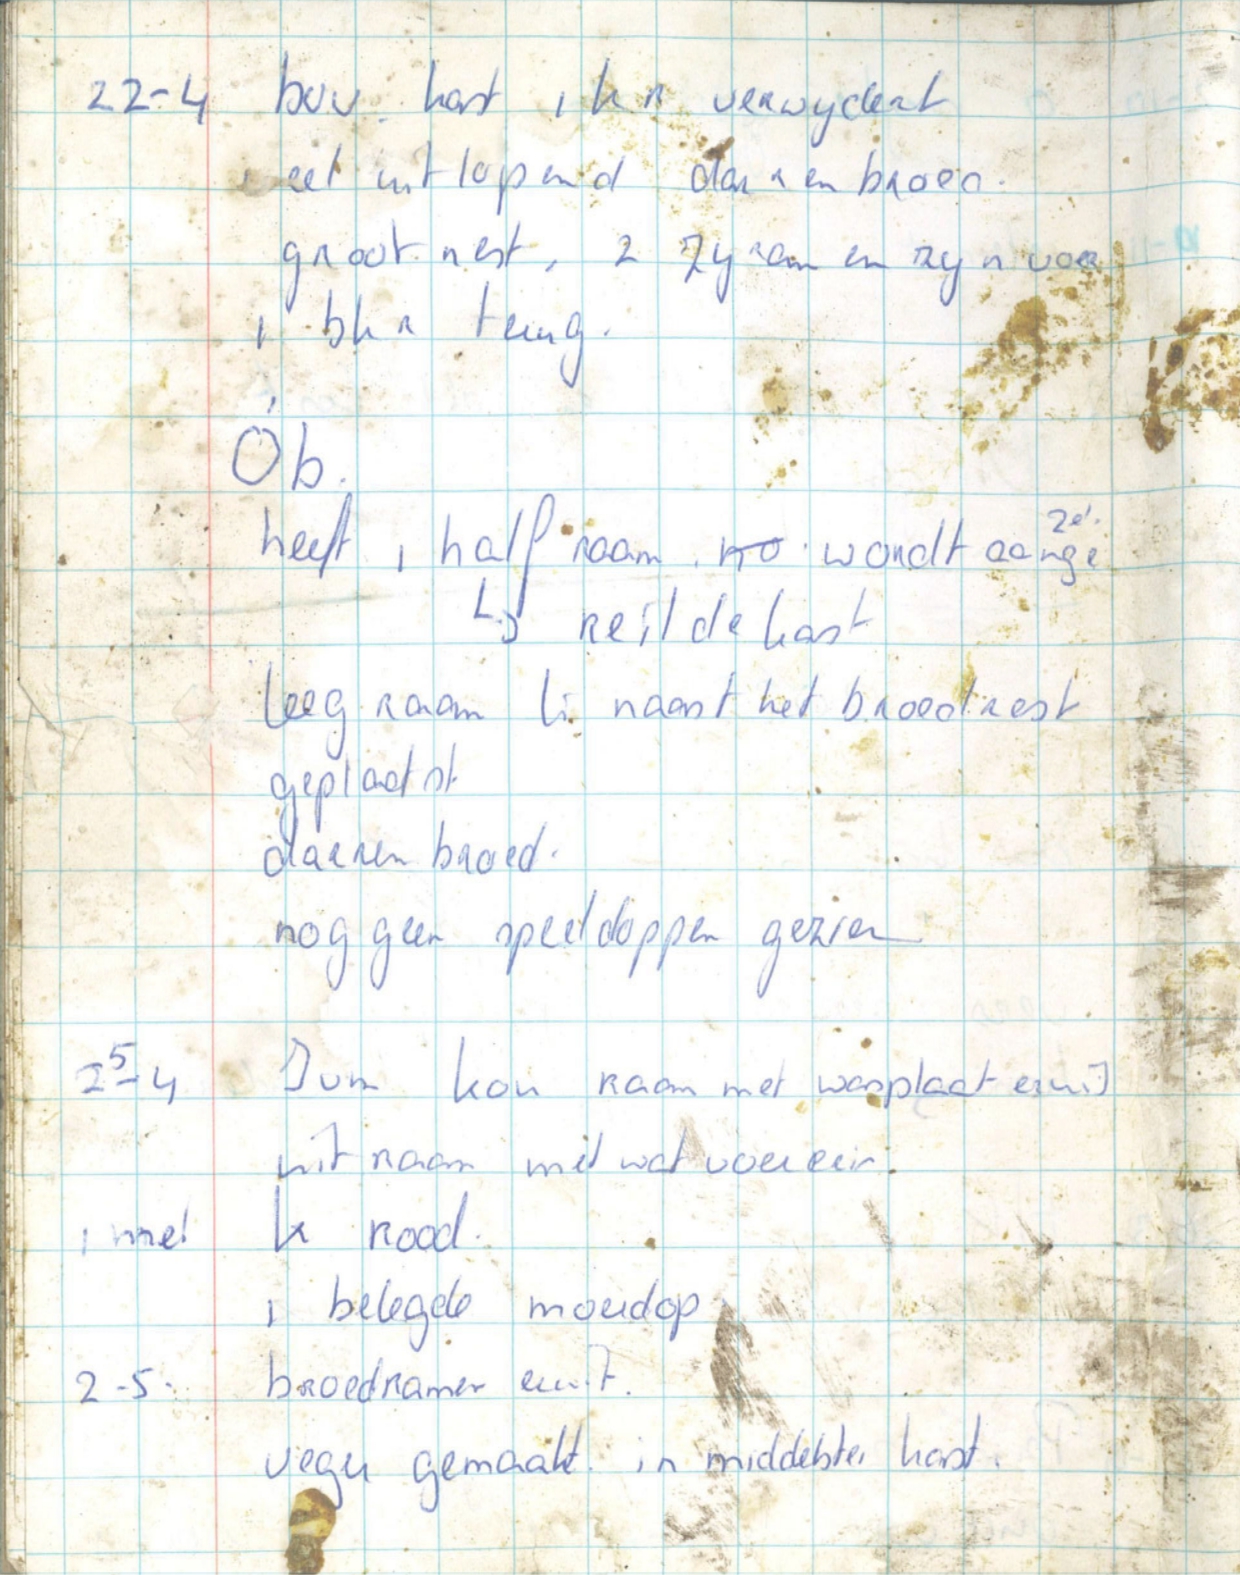 22-4 bov. kast 1 hk verwydert
eet uitlopend darrenbroed.
groot nest, 2 zyramen zyn voer
1 bhk terug.
Ob.
heeft 1 half raam. wordt aange
zé.
reilde kast
leeg raam li naast het broednest
geplaatst
darrenbroed.
nog geen speeldoppen gezien
25-4 kou raam met wasplaat eruit
uit raam met wat voer erin.
1 mei k rood.
1 belegde moerdop
2-5. broedramen eruit.
veger gemaakt. in middelste kast.